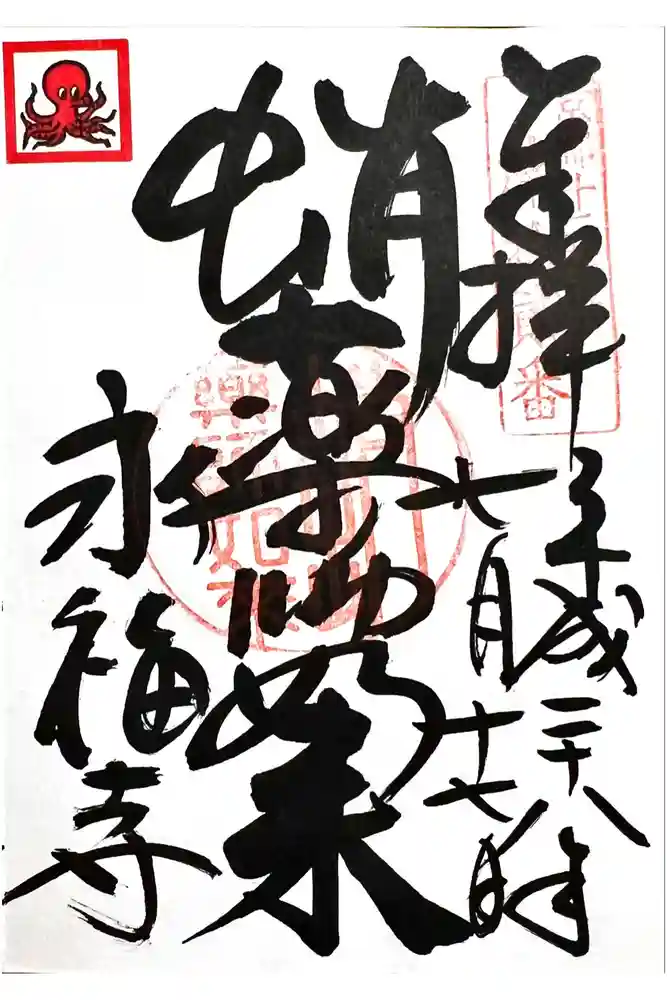 奉拝
平成二十八年
七月十七日
蛸薬師如来
永福寺